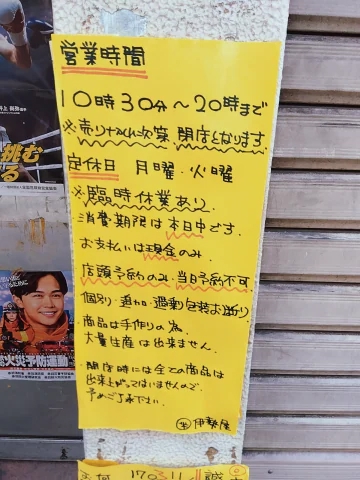 営業時間
10時30分～20時まで
※売りナクナリ次第 閉店となります
定休日 月曜・火曜
※臨時休業あり
消費期限は本日中です。
お支払いは現金のみ
店頭予約のみ・当日予約不可
個別・追加・過剰包装お断り
・商品は手作りの為
大量生産は出来ません。
・開店時には全ての商品は
出来上がってはいませんので、
予めご了承下さい。
伊勢屋
挑む
火災予防運動